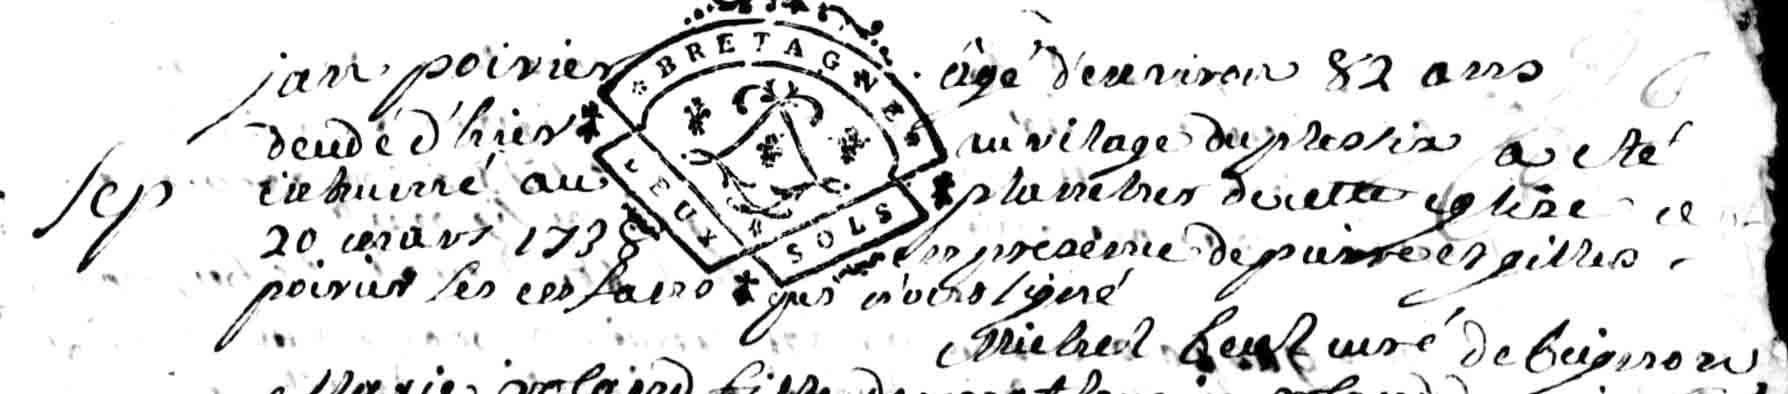 jan poirier agé d'environ 82 ans
BRETAGNE
decédé d'hier au vilage du plessix a eté
Sep
inhumé au placitre de cette eglise ce
DEUX
SOLS
20 mars 1738 en presence de pierre et gilles
poirier les enfans qui n'ont signé
Michel curé de beignon
Marie fille de